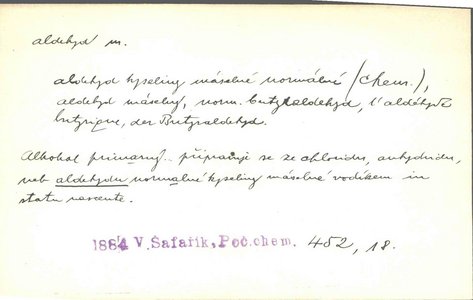 aldehyd m.
aldehyd kyseliny máselné normálné (chem.),
aldehyd máselný, norm. butyraldehyd, l'aldéhyde
butyrique, der Butyraldehyd.
Alkohol primarný.. připravuje se ze chloridu, anhydridu,
neb aldehydu normalné kyseliny máselné vodíkem in
statu nascente.
1884 V. Šafařík, Poč. chem. 452, 18.